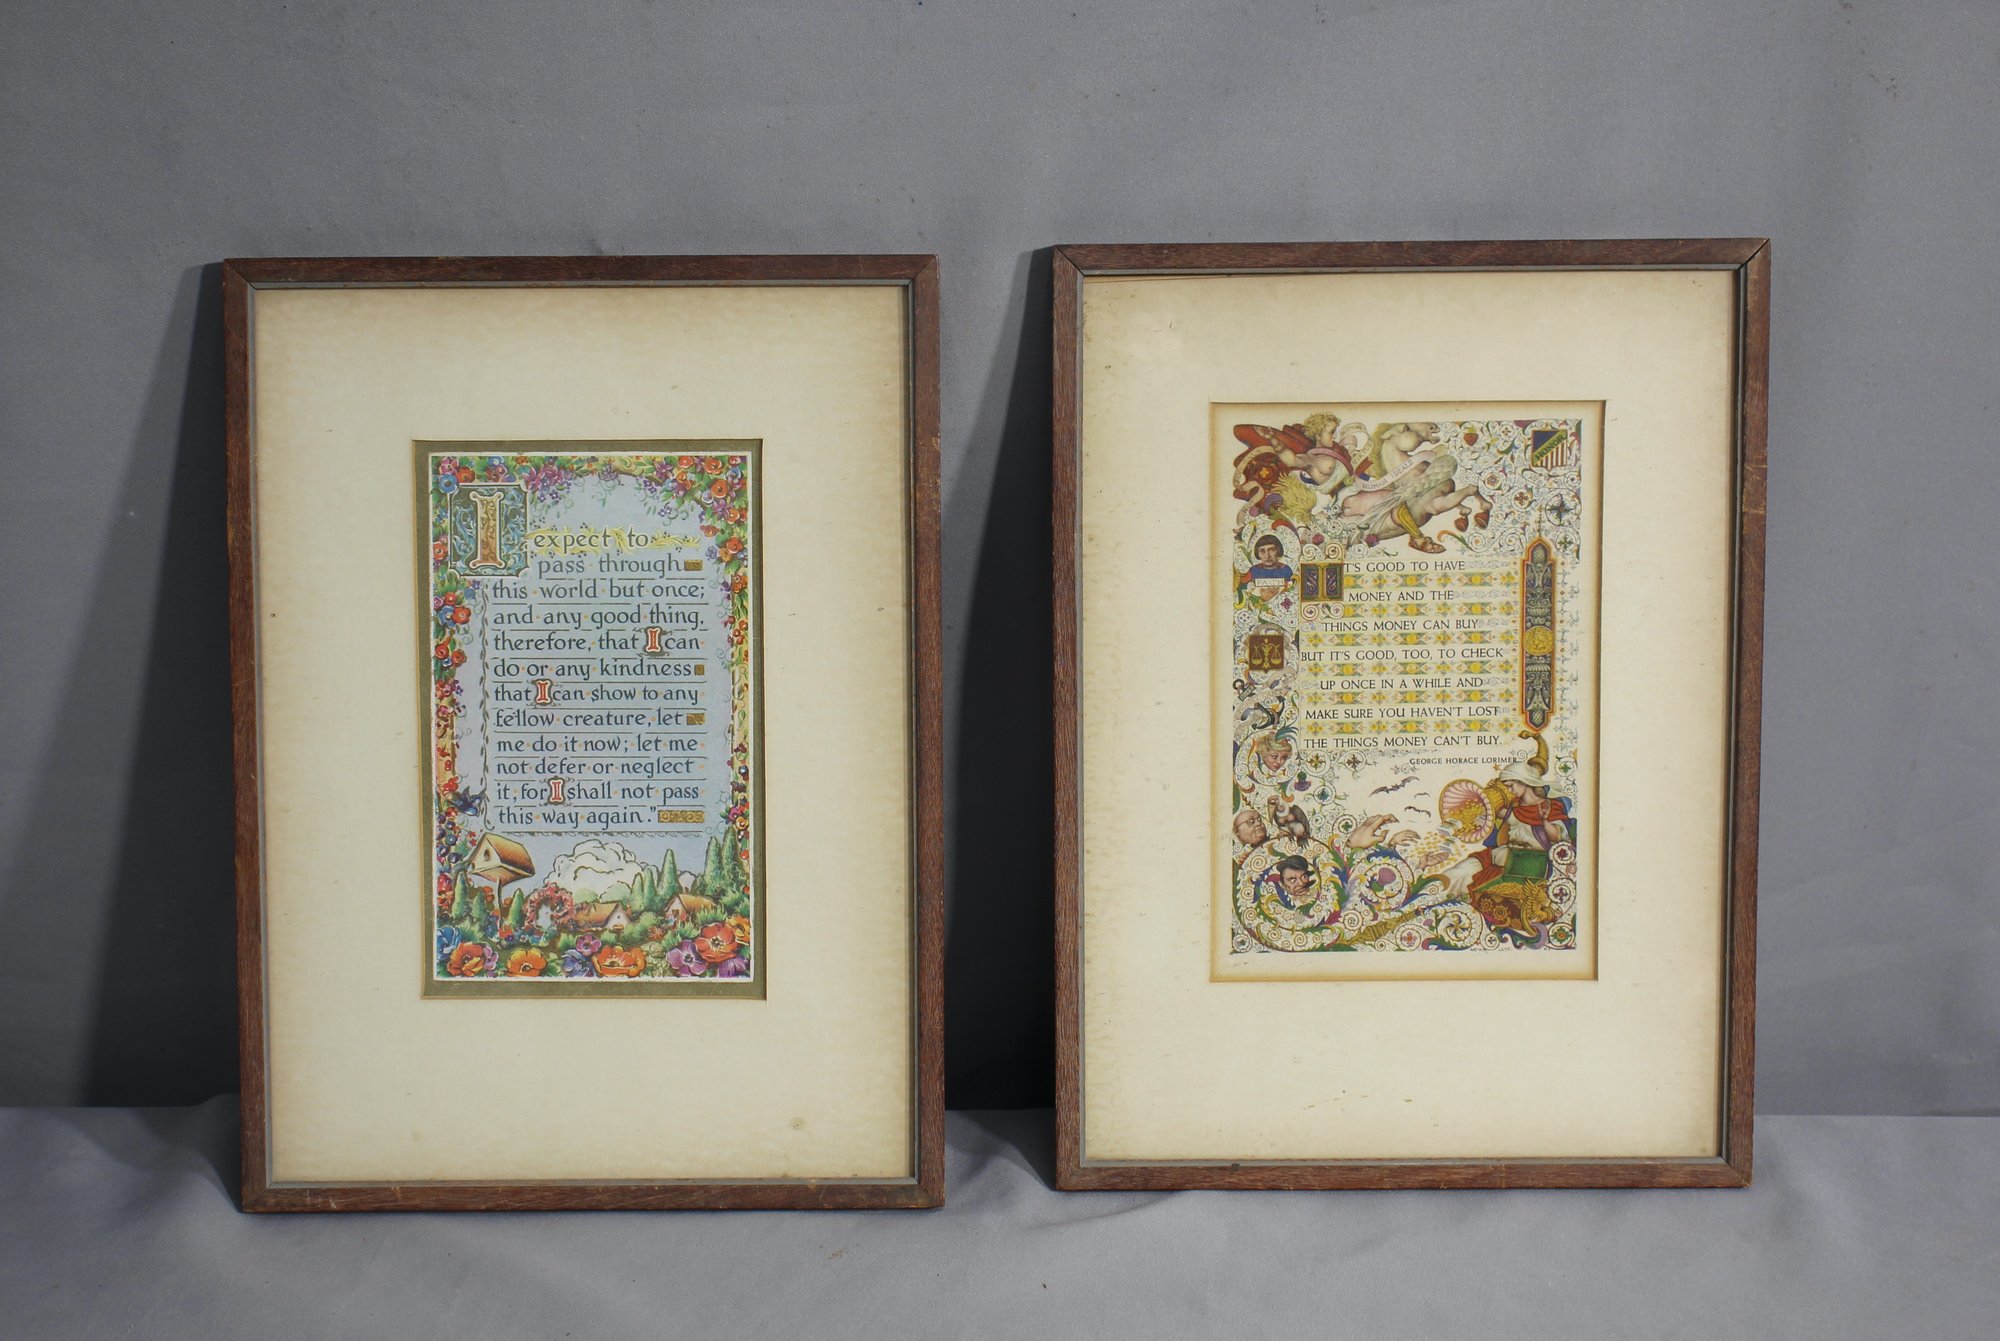 I expect to
pass through
this world but once;
and any good thing,
therefore, that I can
do or any kindness
that I can show to any
fellow creature, let
me do it now; let me
not defer or neglect
it, for I shall not pass
this way again."
IT'S GOOD TO HAVE
MONEY AND THE
THINGS MONEY CAN BUY
BUT IT'S GOOD, TOO, TO CHECK
UP ONCE IN A WHILE AND
MAKE SURE YOU HAVEN'T LOST
THE THINGS MONEY CAN'T BUY.
GEORGE HORACE LORIMER
FAITH